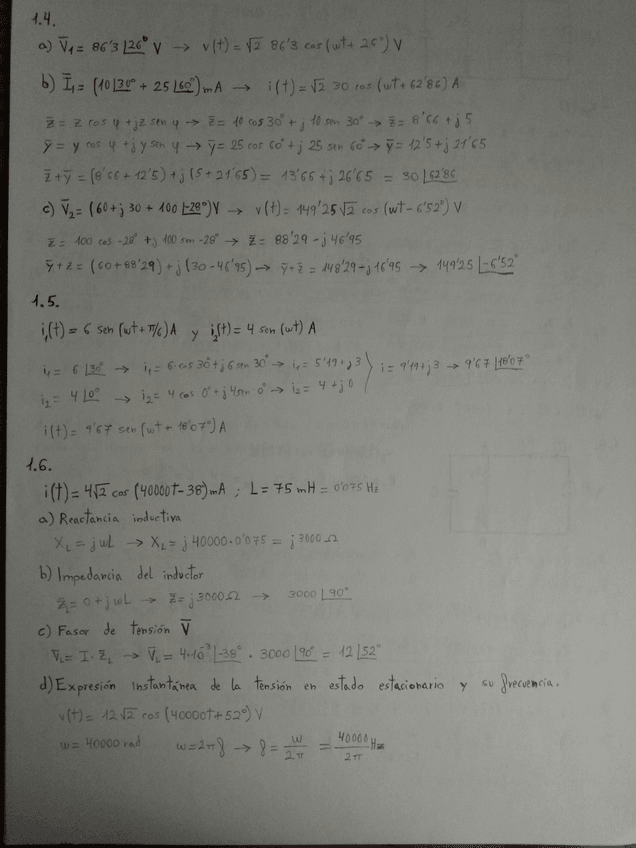 1.4.
a) V̅₁ = 86'3 ∠26° V → v(t) = √2 86'3 cos (wt + 26°) V
b) I̅₁ = (10∠30° + 25∠60°) mA → i(t) = √2 30 cos (wt + 62'86) A
z̅ = z cos φ + j z sen φ → z̅ = 10 cos 30° + j 10 sen 30° → z̅ = 8'66 + j 5
y̅ = y cos φ + j y sen φ → y̅ = 25 cos 60° + j 25 sen 60° → y̅ = 12'5 + j 21'65
z̅ + y̅ = (8'66 + 12'5) + j (5 + 21'65) = 13'66 + j 26'65 = 30 ∠62'86
c) V̅₂ = (60 + j 30 + 100 ∠-28°) V → v(t) = 149'25 √2 cos (wt - 6'52°) V
z̅ = 100 cos -28° + j 100 sen -28° → z̅ = 88'29 - j 46'95
y̅ + z = (60 + 88'29) + j (30 - 46'95) → y̅ + z̅ = 148'29 - j 16'95 → 149'25 ∠-6'52°
1.5.
i₁(t) = 6 sen (wt + π/6) A y i₂(t) = 4 sen (wt) A
i₁ = 6 ∠30° → i₁ = 6·cos 30° + j 6 sen 30° → i₁ = 5'19 + j 3 } i = 9'19 + j 3 → 9'67 ∠18'07°
i₂ = 4 ∠0° → i₂ = 4 cos 0° + j 4 sen 0° → i₂ = 4 + j 0
i(t) = 9'67 sen (wt + 18'07°) A
1.6.
i(t) = 4√2 cos (40000t - 38°) mA ; L = 75 mH = 0'075 Hz
a) Reactancia inductiva
X_L = j wL → X_L = j 40000 · 0'075 = j 3000 Ω
b) Impedancia del inductor
z̅_L = 0 + j wL → z̅ = j 3000 Ω → 3000 ∠90°
c) Fasor de tensión V̅
V̅_L = I · z̅_L → V̅_L = 4·10⁻³ ∠-38° · 3000 ∠90° = 12 ∠52°
d) Expresión instantánea de la tensión en estado estacionario y su frecuencia.
v(t) = 12 √2 cos (40000t + 52°) V
w = 40000 rad w = 2π f → f = w/2π = 40000/2π Hz